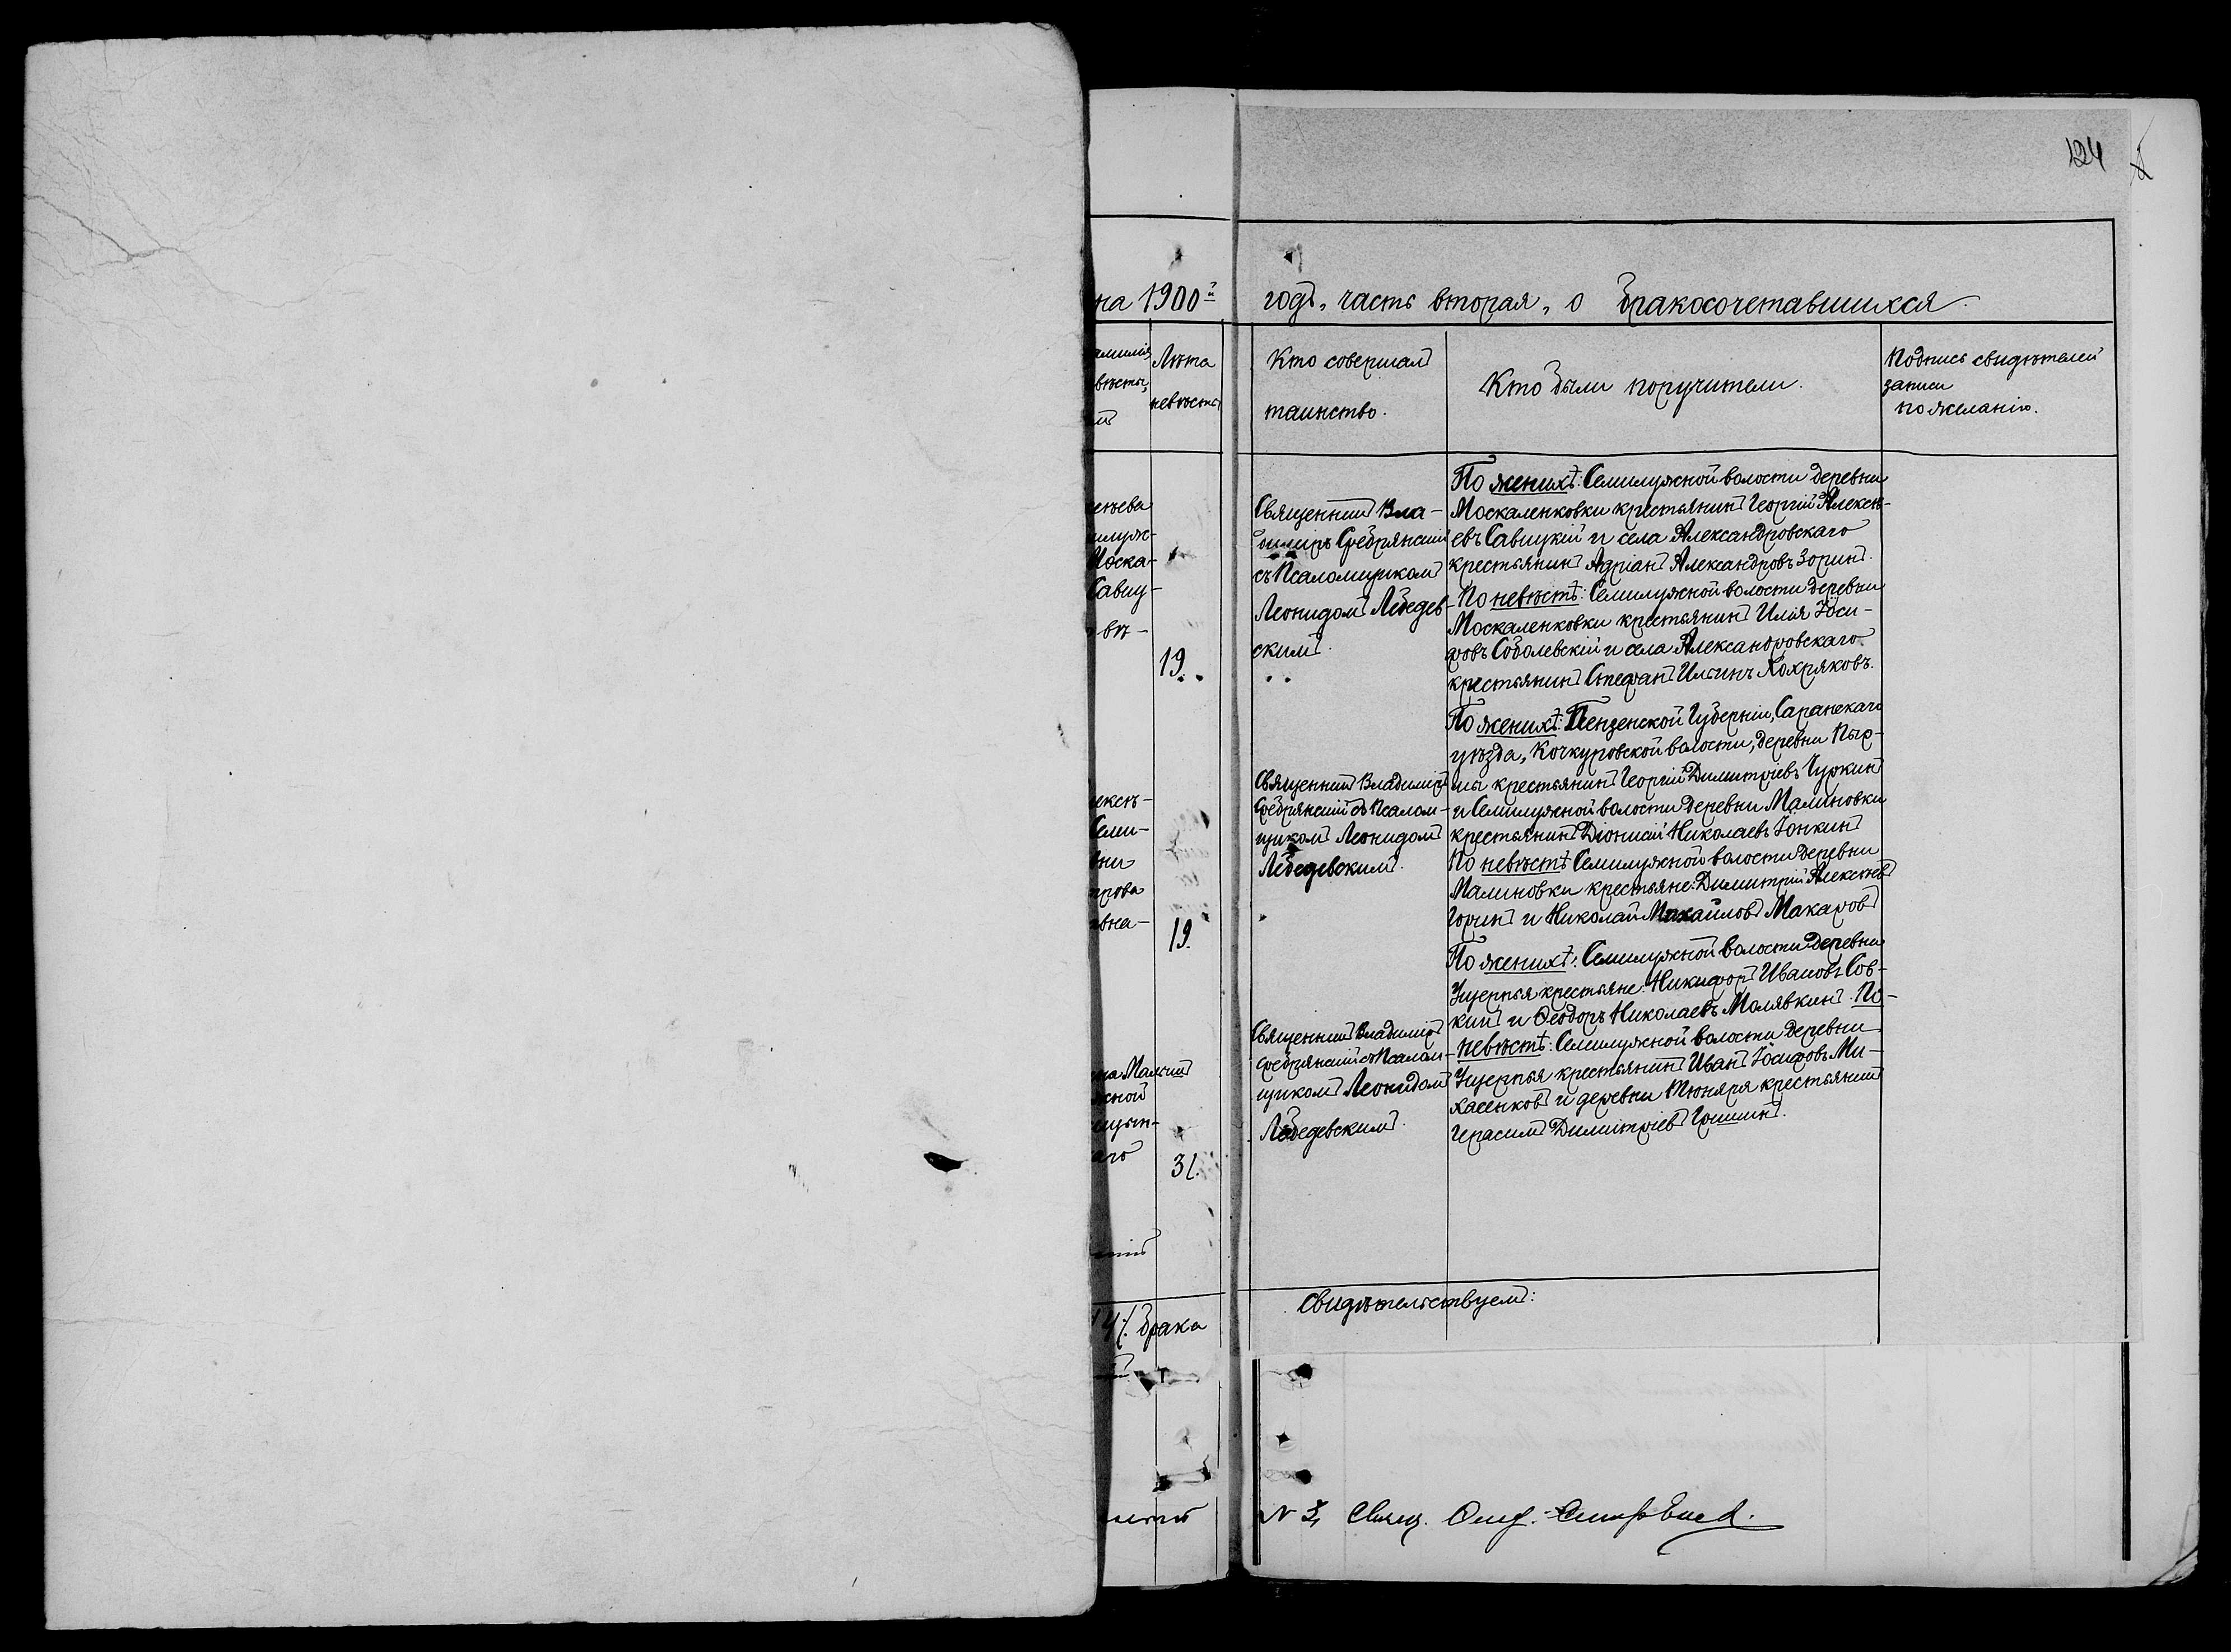 124
на 1900й
годъ, часть вторая, о бракосочетавшихся.
амилія
вѣсты,
Лѣта
невѣсты
Кто совершалъ
таинство.
Кто были поручители.
Подпись свидѣтелей
записи
по желанію.
ѣева
илуж-
Моска-
Савиц-
вѣ-
19.
Священникъ Вла-
димиръ Сребрянскій
съ Псаломщикомъ
Леонидомъ Лебедев-
скимъ.
По женихѣ: Семилужной волости деревни
Москаленковки крестьянинъ Георгій Алексѣ-
евъ Савицкій и села Александровскаго
крестьянинъ Адріанъ Александровъ Зоринъ.
По невѣстѣ: Семилужной волости деревни
Москаленковки крестьянинъ Илія Іоси-
фовъ Соболевскій и села Александровскаго
крестьянинъ Стефанъ Ильинъ Хохряковъ.
ексѣ-
Семи-
вни
трова
вна-
19.
Священникъ Владиміръ
Сребрянскій съ Псалом-
щикомъ Леонидомъ
Лебедевскимъ.
По женихѣ: Пензенской Губерніи, Саранскаго
уѣзда, Кочкуровской волости, деревни Пыр-
мы крестьянинъ Георгій Димитріевъ Чуркинъ
и Семилужной волости деревни Малиновки
крестьянинъ Діонисій Николаевъ Іонкинъ
По невѣстѣ Семилужной волости деревни
Малиновки крестьяне: Димитрій Алексѣевъ
Юринъ и Николай Михайловъ Макаровъ
жной
аго
31.
Священникъ Владиміръ
Сребрянскій съ Псалом-
щикомъ Леонидомъ
Лебедевскимъ.
По женихѣ: Семилужной волости деревни
Ущерпья крестьяне: Никифоръ Ивановъ Сов-
кинъ и Ѳеодоръ Николаевъ Молявкинъ. По-
невѣстѣ: Семилужной волости деревни
Ущерпья крестьянинъ Иванъ Іосифовъ Ми-
хасенковъ и деревни Тюняря крестьянинъ
Герасимъ Димитріевъ Гришинъ.
4. брака
Свидѣтельствуемъ:
N 3, Свящ.